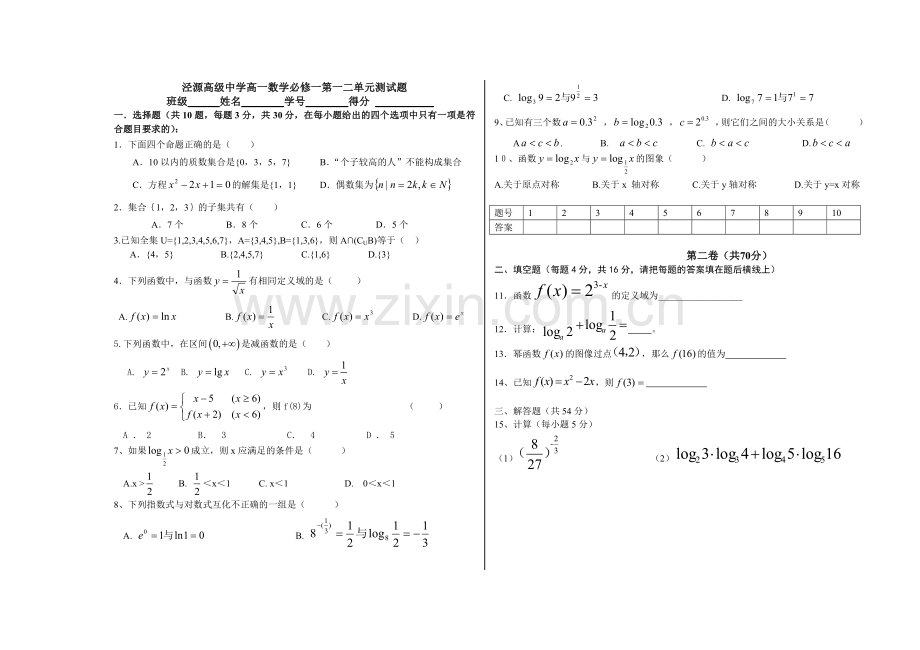 泾源高级中学高一数学必修一第一二单元测试题
班级______姓名______学号______得分 __________
一．选择题（共 10 题，每题 3 分，共 30 分，在每小题给出的四个选项中只有一项是符
合题目要求的）：
1．下面四个命题正确的是（ ）
A．10 以内的质数集合是{0，3，5，7} B．“个子较高的人”不能构成集合
C．方程 x² − 2x + 1 = 0 的解集是{1，1} D．偶数集为 {n | n = 2k, k ∈ N}
2．集合｛1，2，3｝的子集共有（ ）
A．7 个 B．8 个 C．6 个 D．5 个
3.已知全集 U={1,2,3,4,5,6,7}，A={3,4,5},B={1,3,6}，则 A∩(CUB)等于（ ）
A．{4，5} B.{2,4,5,7} C.{1,6} D.{3}
4．下列函数中，与函数 y = 1/√x 有相同定义域的是（ ）
A. f(x) = ln x B. f(x) = 1/x C. f(x) = x³ D. f(x) = eˣ
5.下列函数中，在区间 (0, +∞) 是减函数的是（ ）
A. y = 2ˣ B. y = lg x C. y = x³ D. y = 1/x
6．已知 f(x) = { x − 5 (x ≥ 6) f(x + 2) (x < 6) ，则 f(8)为 （ ）
A . 2 B. 3 C. 4 D . 5
7、如果 log_{1/2} x > 0 成立，则 x 应满足的条件是（ ）
A.x＞1/2 B. 1/2＜x＜1 C. x＜1 D. 0＜x＜1
8、下列指数式与对数式互化不正确的一组是（ ）
A. e⁰ = 1与 ln1 = 0 B. 8^{−(1/3)} = 1/2 与 log₈ 1/2 = −1/3
C. log₃ 9 = 2与9^{1/2} = 3 D. log₇ 7 = 1与7¹ = 7
9、已知有三个数 a = 0.3² ，b = log₂ 0.3 ，c = 2^{0.3} ，则它们之间的大小关系是（ ）
A a < c < b . B. a < b < c C. b < a < c D. b < c < a
10、函数 y = log₂ x 与 y = log_{1/2} x 的图象（ ）
A.关于原点对称 B.关于 x 轴对称 C.关于 y 轴对称 D.关于 y=x 对称
题号 1 2 3 4 5 6 7 8 9 10
答案
第二卷（共70分）
二、填空题（每题 4 分，共 16 分，请把每题的答案填在题后横线上）
11．函数 f(x) = 2^{3-x} 的定义域为________________
12．计算：logₐ 2 + logₐ 1/2 = ____。
13．幂函数 f(x) 的图像过点 (4,2)，那么 f(16) 的值为____________
14、已知 f(x) = x² − 2x，则 f(3) = ____________
三、解答题（共 54 分）
15、计算（每小题 5 分）
（1）(8/27)^{−2/3} （2） log₂ 3·log₃ 4 + log₄ 5·log₅ 16
www.zixin.com.cn